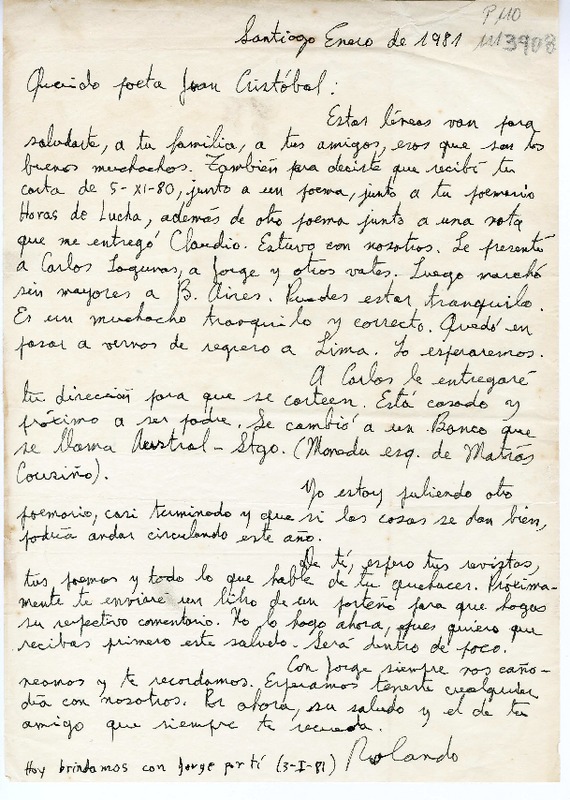 P 110
Santiago Enero de 1981
3908
Querido poeta Juan Cristóbal:
Estas líneas van para
saludarte, a tu familia, a tus amigos, esos que son los
buenos muchachos. También para decirte que recibí tu
carta de 5-XI-80, junto a un poema, junto a tu poemario
Horas de Lucha, además de otro poema junto a una nota
que me entregó Claudio. Estuvo con nosotros. Le presenté
a Carlos Lagunas, a Jorge y otros vates. Luego marchó
sin mayores a B. Aires. Puedes estar tranquilo.
Es un muchacho tranquilo y correcto. Quedó en
pasar a vernos de regreso a Lima. Lo esperaremos.
A Carlos le entregaré
tu dirección para que se carteen. Está casado y
próximo a ser padre. Se cambió a un Banco que
se llama Austral - Stgo. (Moneda esq. de Matías
Cousiño).
Yo estoy puliendo otro
poemario, casi terminado y que si las cosas se dan bien,
podría andar circulando este año.
De tí, espero tus revistas,
tus poemas y todo lo que hable de tu quehacer. Próxima-
mente te enviaré un libro de un porteño para que hagas
su respectivo comentario. No lo hago ahora, pues quiero que
recibas primero este saludo. Será dentro de poco.
Con Jorge siempre nos caño-
neamos y te recordamos. Esperamos tenerte cualquier
día con nosotros. Por ahora, su saludo y el de tu
amigo que siempre te recuerda.
Rolando
Hoy brindamos con Jorge por tí (3-I-81)